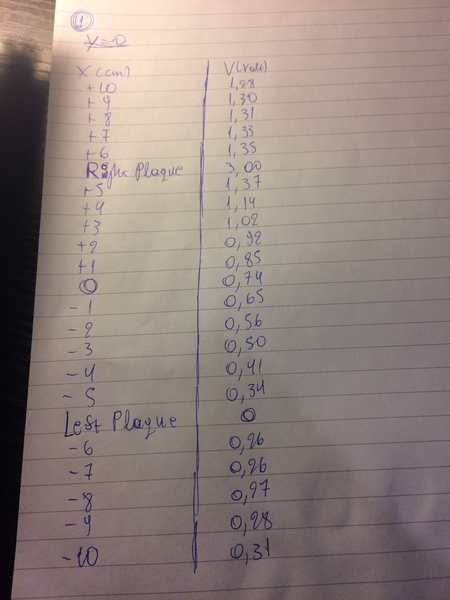 1
y=0
X (cm) V(Volt)
+10 1,28
+9 1,30
+8 1,31
+7 1,33
+6 1,35
Right Plaque 3,00
+5 1,37
+4 1,14
+3 1,02
+2 0,92
+1 0,85
0 0,74
-1 0,65
-2 0,56
-3 0,50
-4 0,41
-5 0,34
Left Plaque 0
-6 0,26
-7 0,26
-8 0,27
-9 0,28
-10 0,31